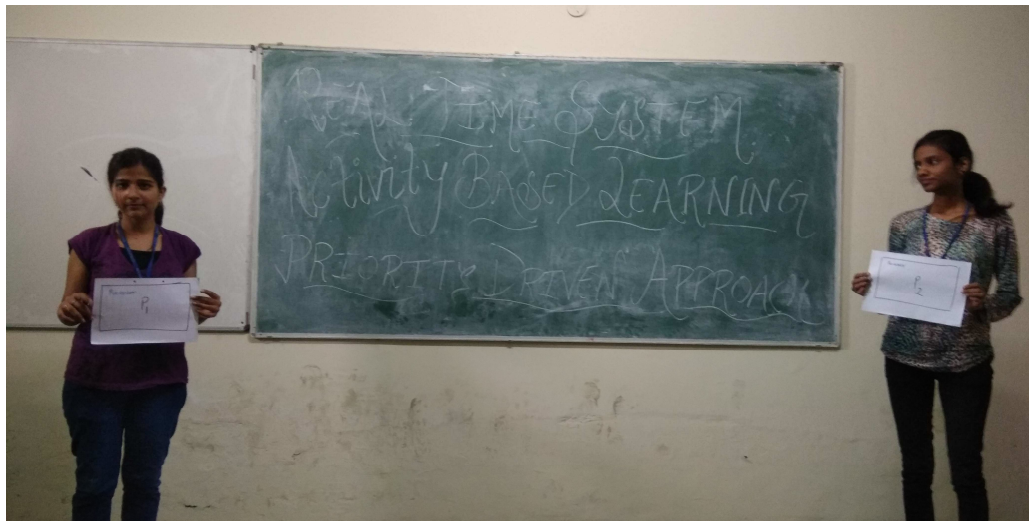 REAL TIME SYSTEM
Activity BASED LEARNING
PRIORITY DRIVEN APPROACH
Processor
P1
Processor
P2